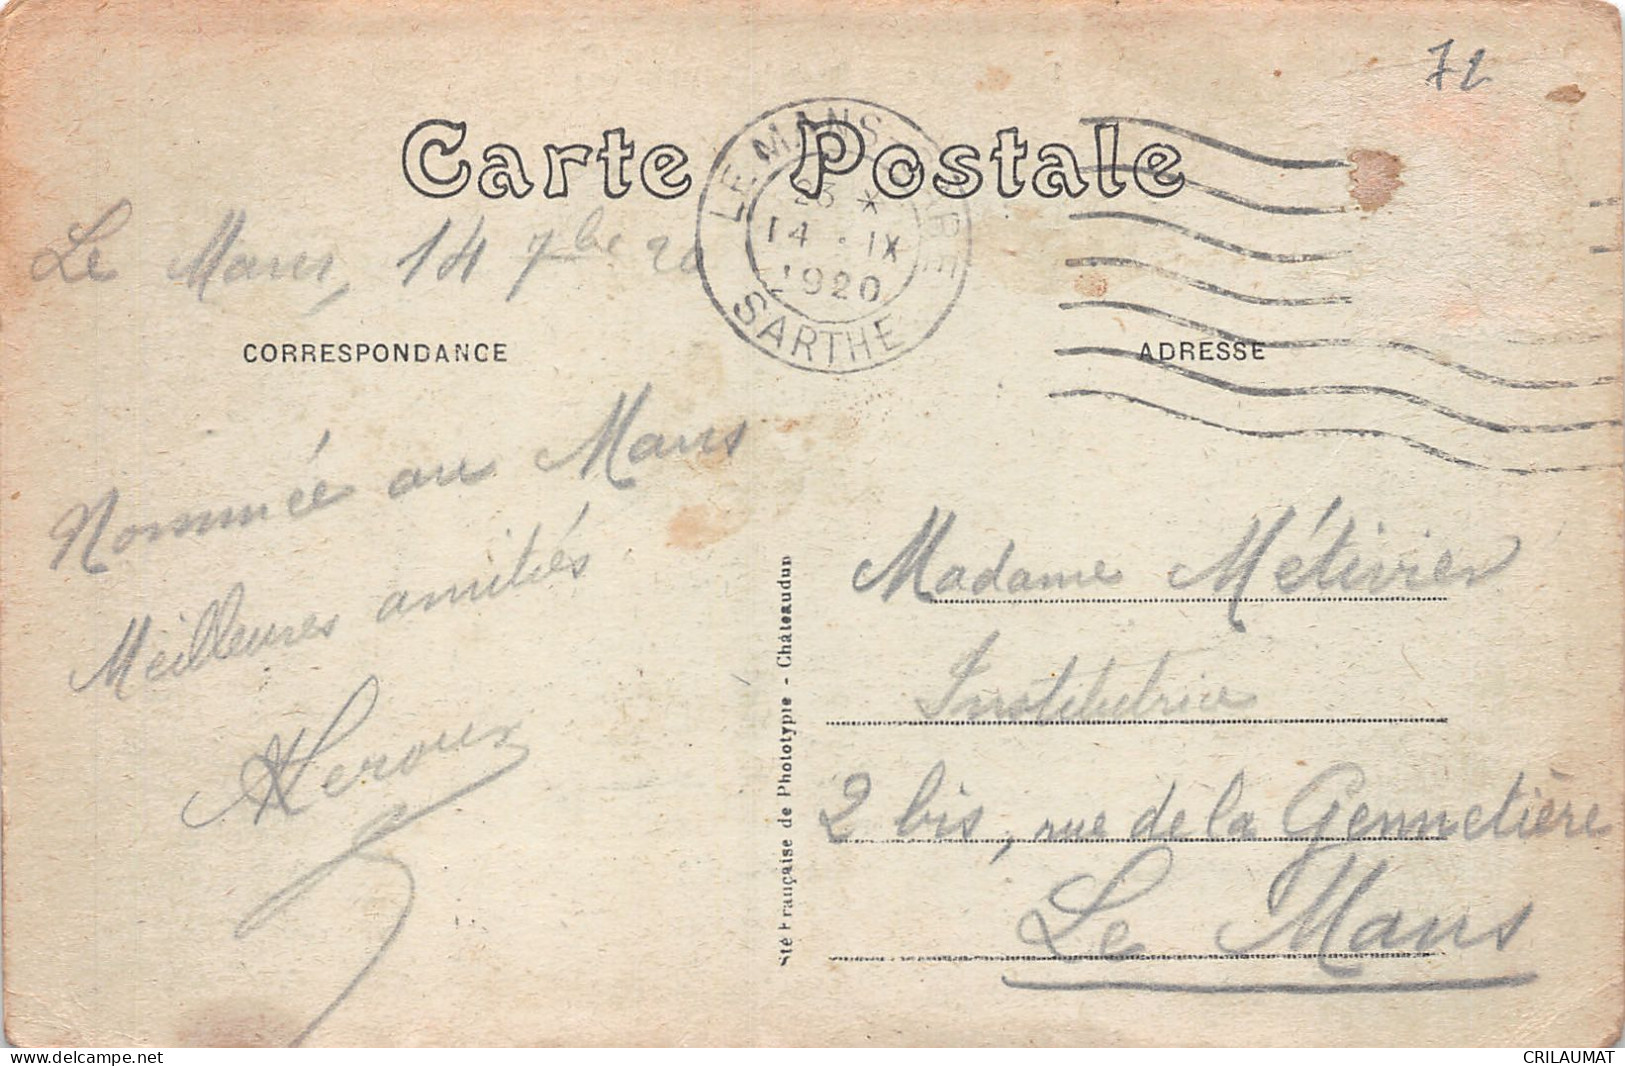 72
Carte Postale
LE MANS-GARE
23 *
14 · IX
1920
SARTHE
Le Mans, 14 7bre 20
CORRESPONDANCE
ADRESSE
Nommée au Mans
Meilleures amitiés
Leroux
Sté Française de Phototypie - Châteaudun
Madame Métivier
Institutrice
2 bis, rue de la Gennetière
Le Mans
delcampe.net
CRILAUMAT